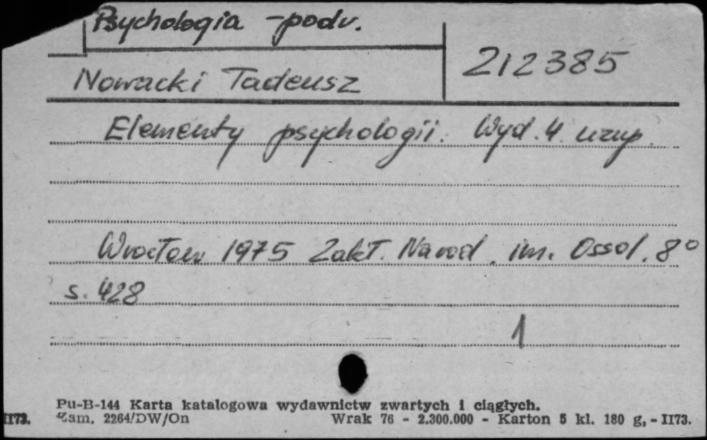 Psychologia - podr.
Nowacki Tadeusz
212385
Elementy psychologii. Wyd. 4 uzup.
Wrocław 1975 Zakł. Narod. im. Ossol. 8°
s. 428
1
Pu-B-144 Karta katalogowa wydawnictw zwartych i ciągłych.
II73. Zam. 2264/DW/On Wrak 76 - 2.300.000 - Karton 5 kl. 180 g, - II73.